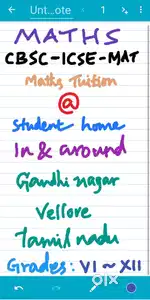 Unt...ote
1
MATHS
CBSC-ICSE-MAT
Maths Tuition
@
Student home
In & around
Gandhi nagar
Vellore
Tamil nadu
Grades: VI ~ XII
OLX